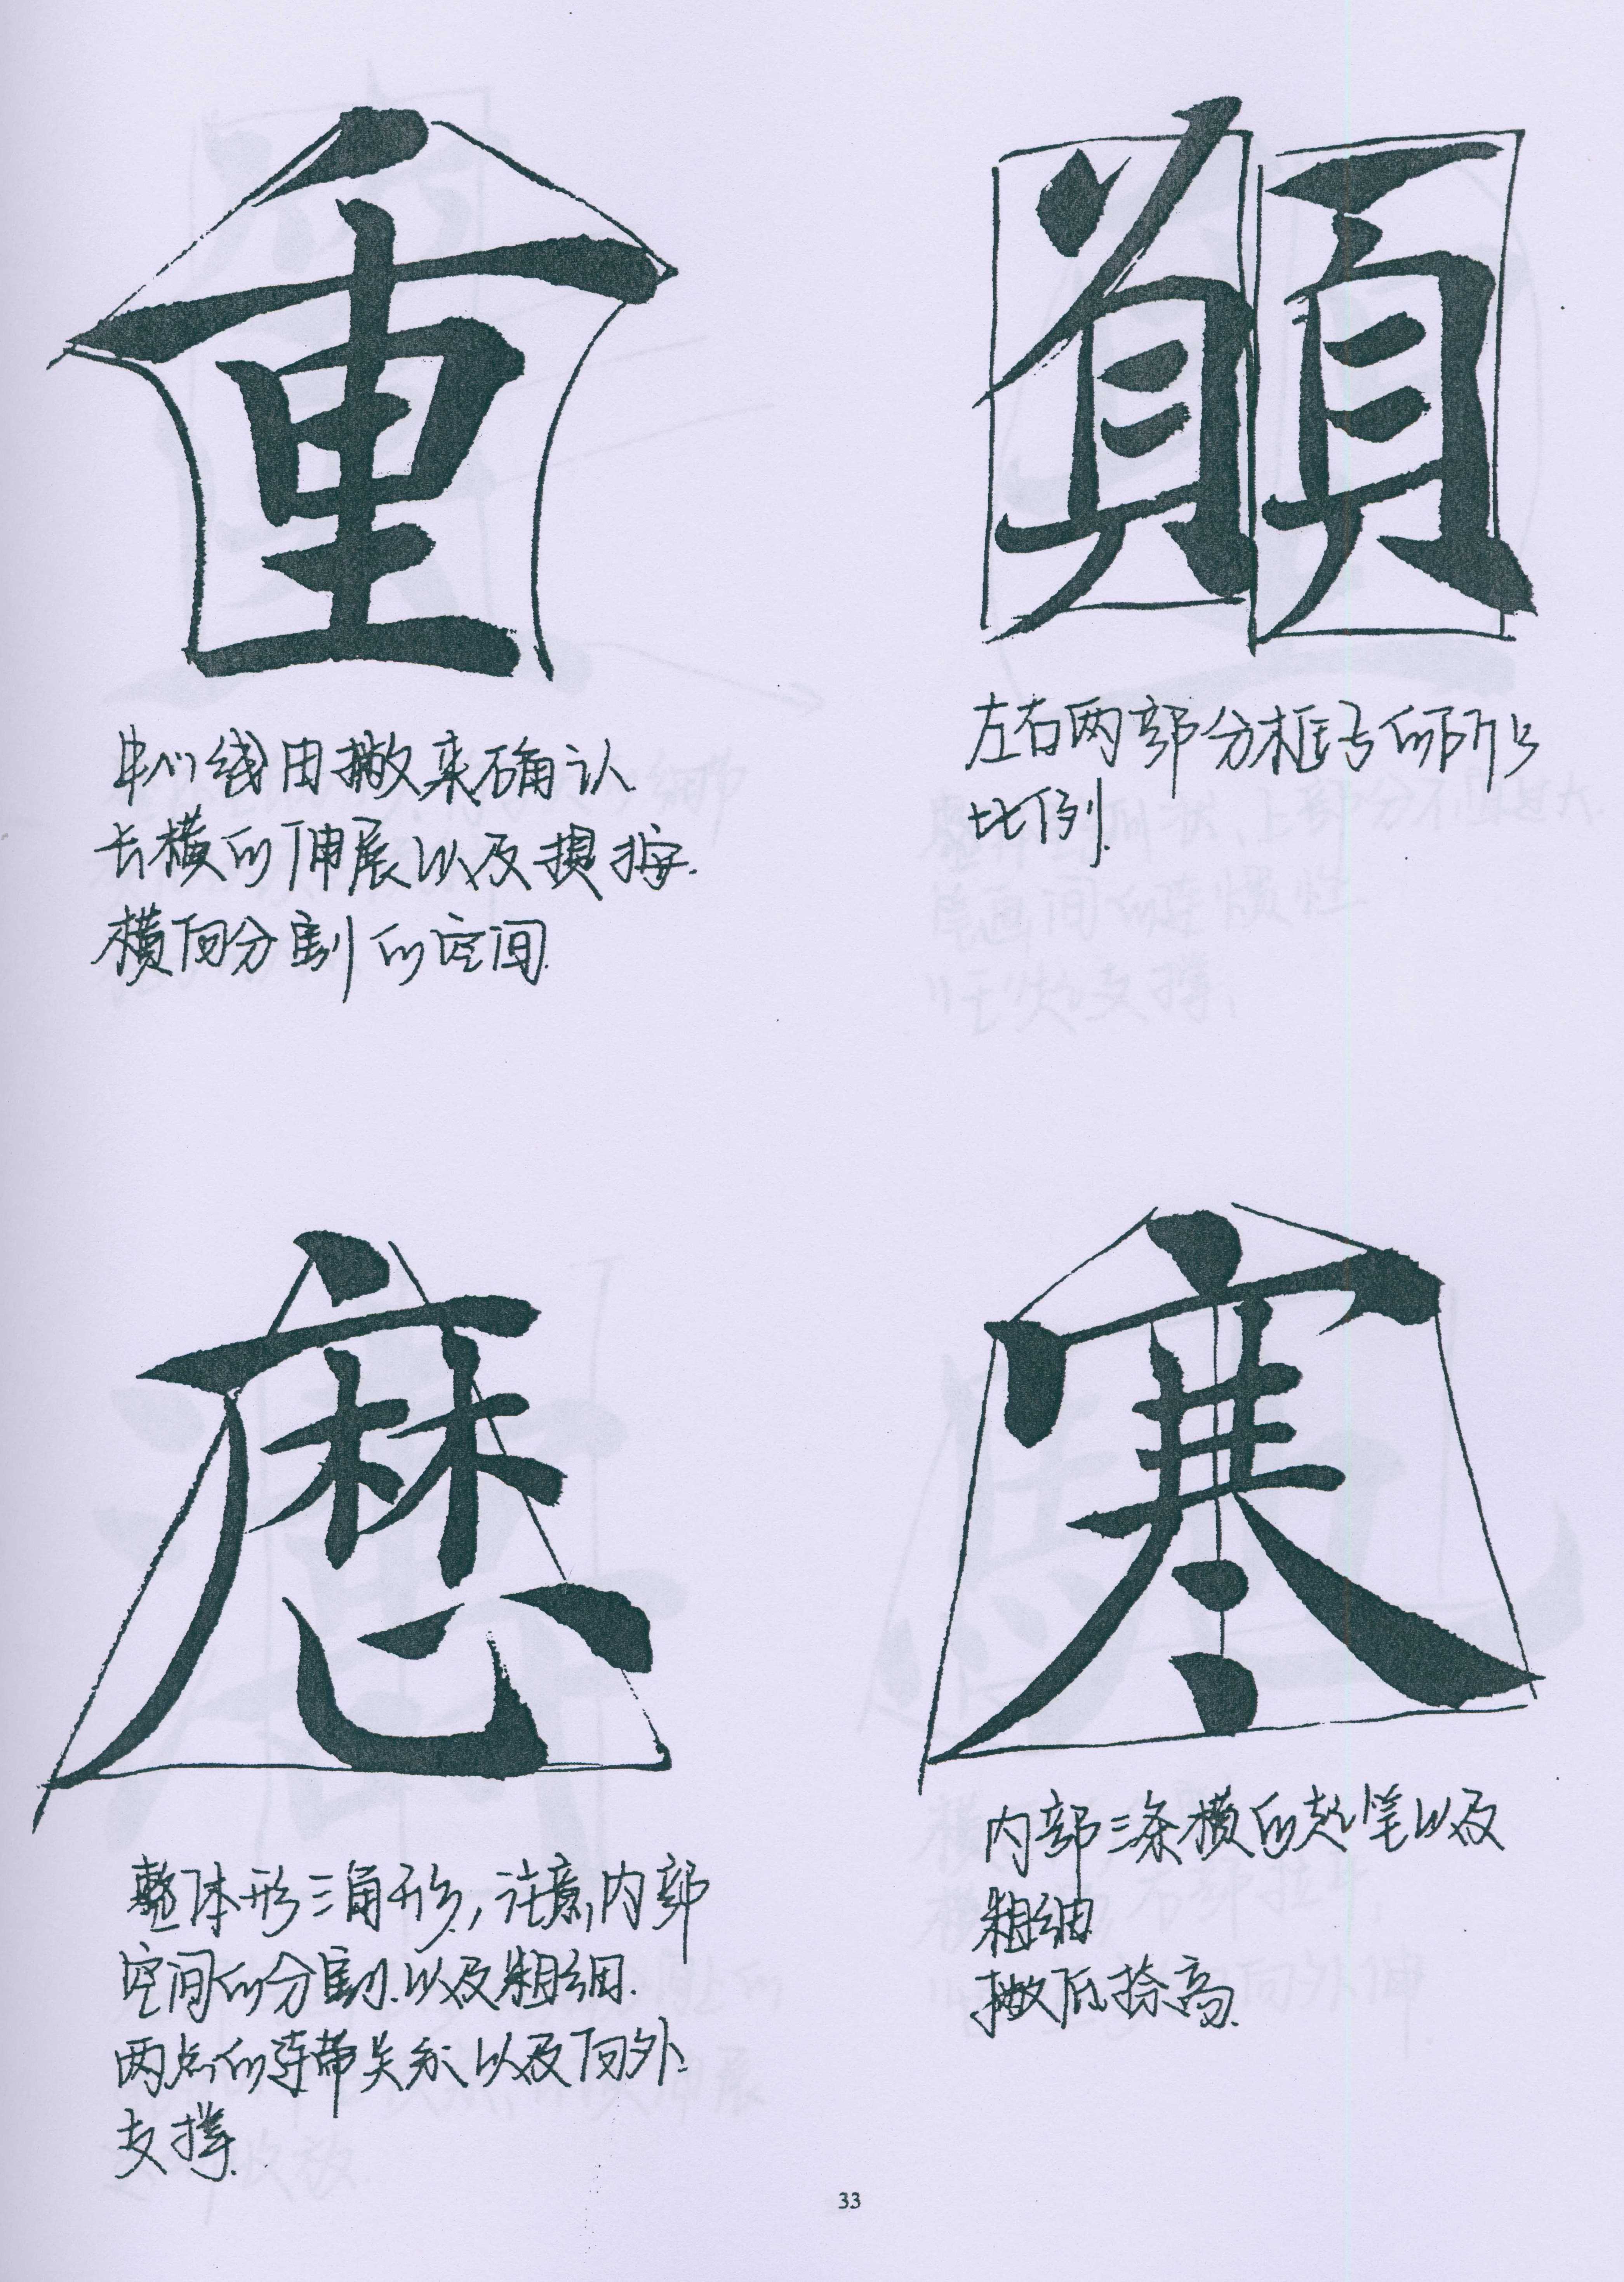 重
中心线由撇来确认
长横的伸展以及提按.
横向分割的空间.
顛
左右两部分框与的所占
比例.
歷
整体形三角形,注意内部
空间的分割.以及粗细.
两点的连带关系以及向外
支撑.
寒
内部三条横的起笔以及
粗细
撇低捺高.
33